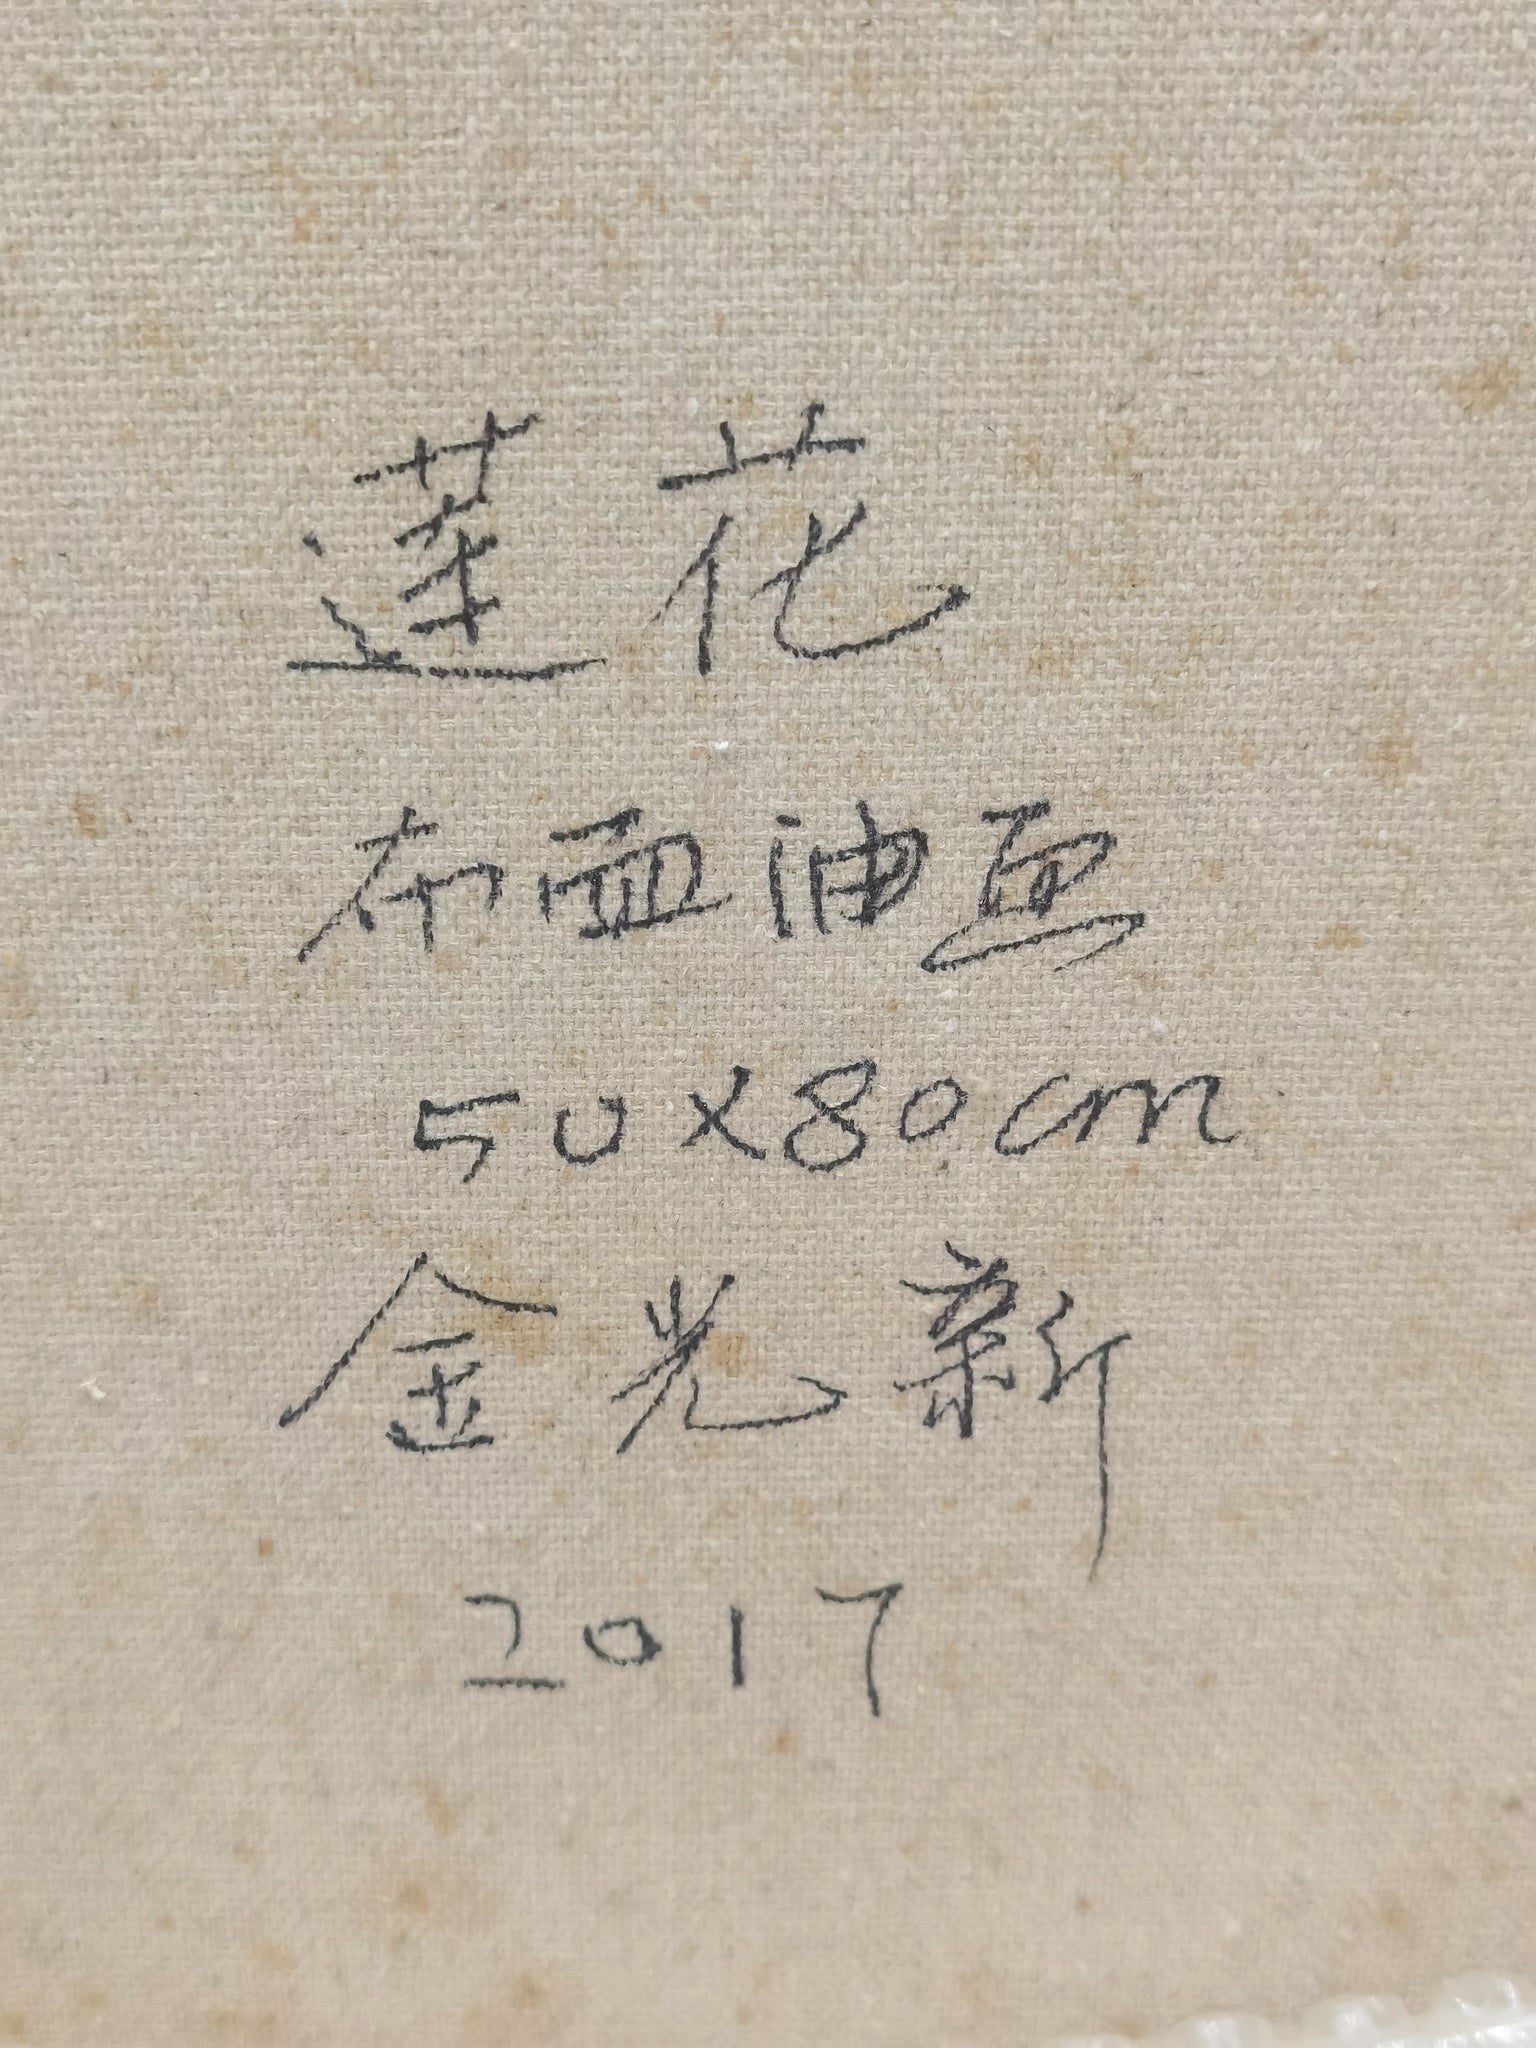 莲花
布面油画
50x80cm
金光新
2017